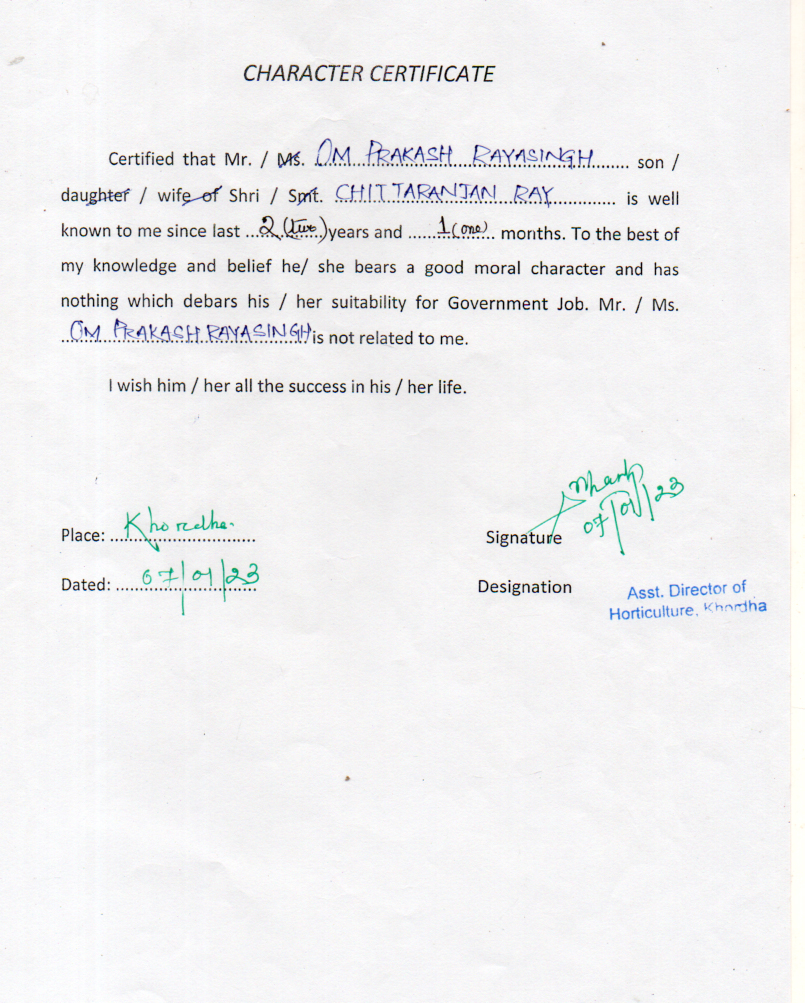 CHARACTER CERTIFICATE
Certified that Mr. / Ms. OM PRAKASH RAYASINGH son /
daughter / wife of Shri / Smt. CHITTARANJAN RAY is well
known to me since last ...2 (two) years and ........1 (one).. months. To the best of
my knowledge and belief he/ she bears a good moral character and has
nothing which debars his / her suitability for Government Job. Mr. / Ms.
OM PRAKASH RAYASINGH is not related to me.
I wish him / her all the success in his / her life.
Place: Khordha
Signature 07/01/23
Dated: 07/01/23
Designation
Asst. Director of
Horticulture, Khordha